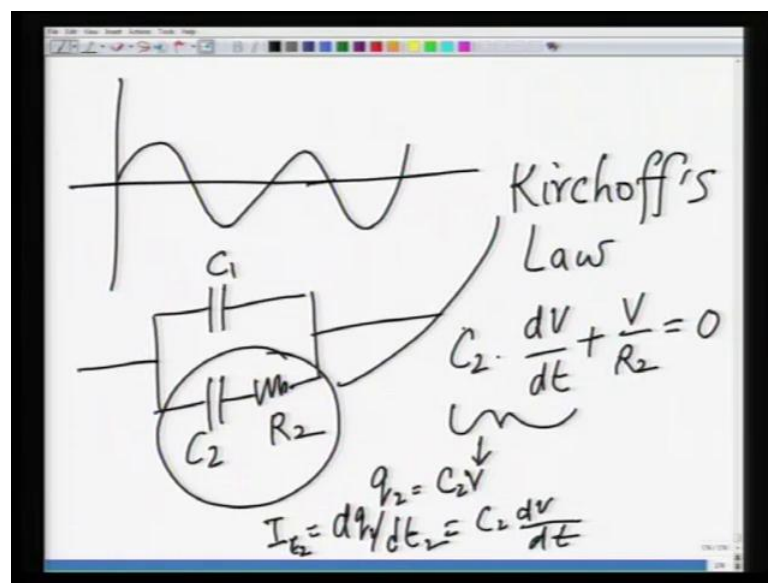 File Edit View Insert Actions Tools Help
Kirchoff's
Law
C₁
C₂ · dV/dt + V/R₂ = 0
C₂ R₂
q₂ = C₂V
I_t₂ = dq/dt₂ = C₂ dv/dt